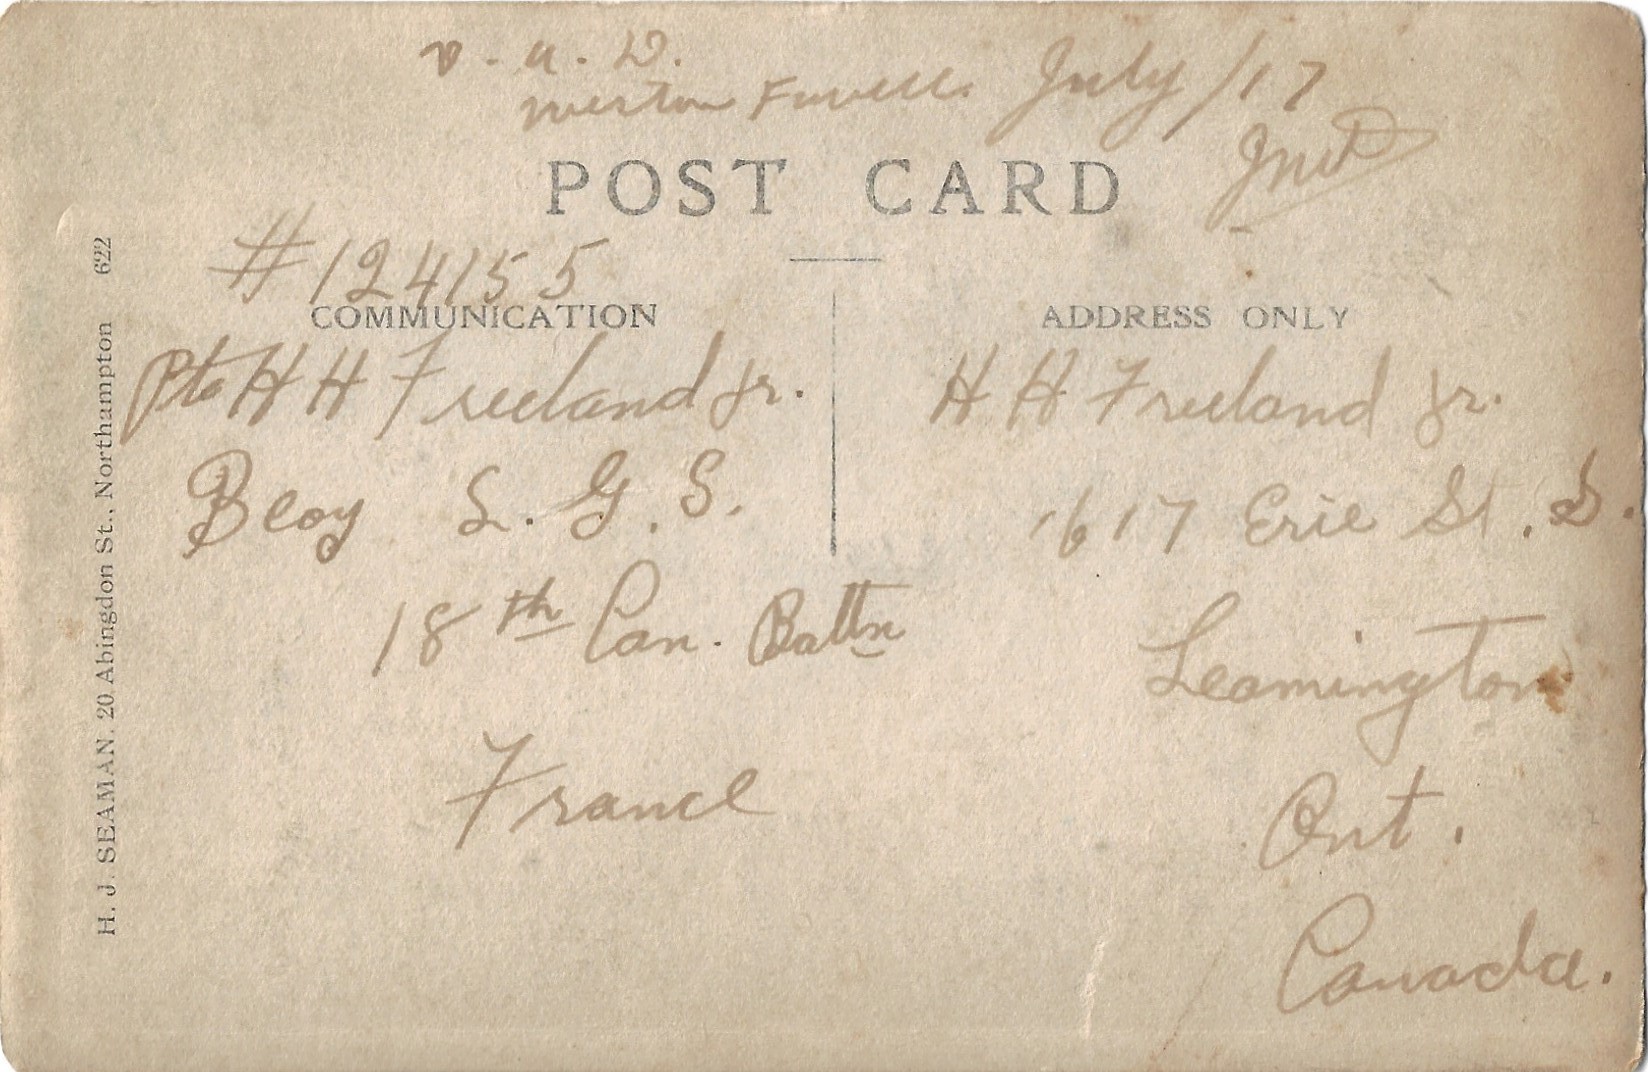 V. A. D.
Weston Favell. July /17
POST CARD
#124155
COMMUNICATION
Pte H H Freeland Jr.
B Coy L. G. S.
18th Can. Battn
France
ADDRESS ONLY
H H Freeland Jr.
1617 Erie St. S.
Leamington
Ont.
Canada.
H. J. SEAMAN. 20 Abingdon St., Northampton 622